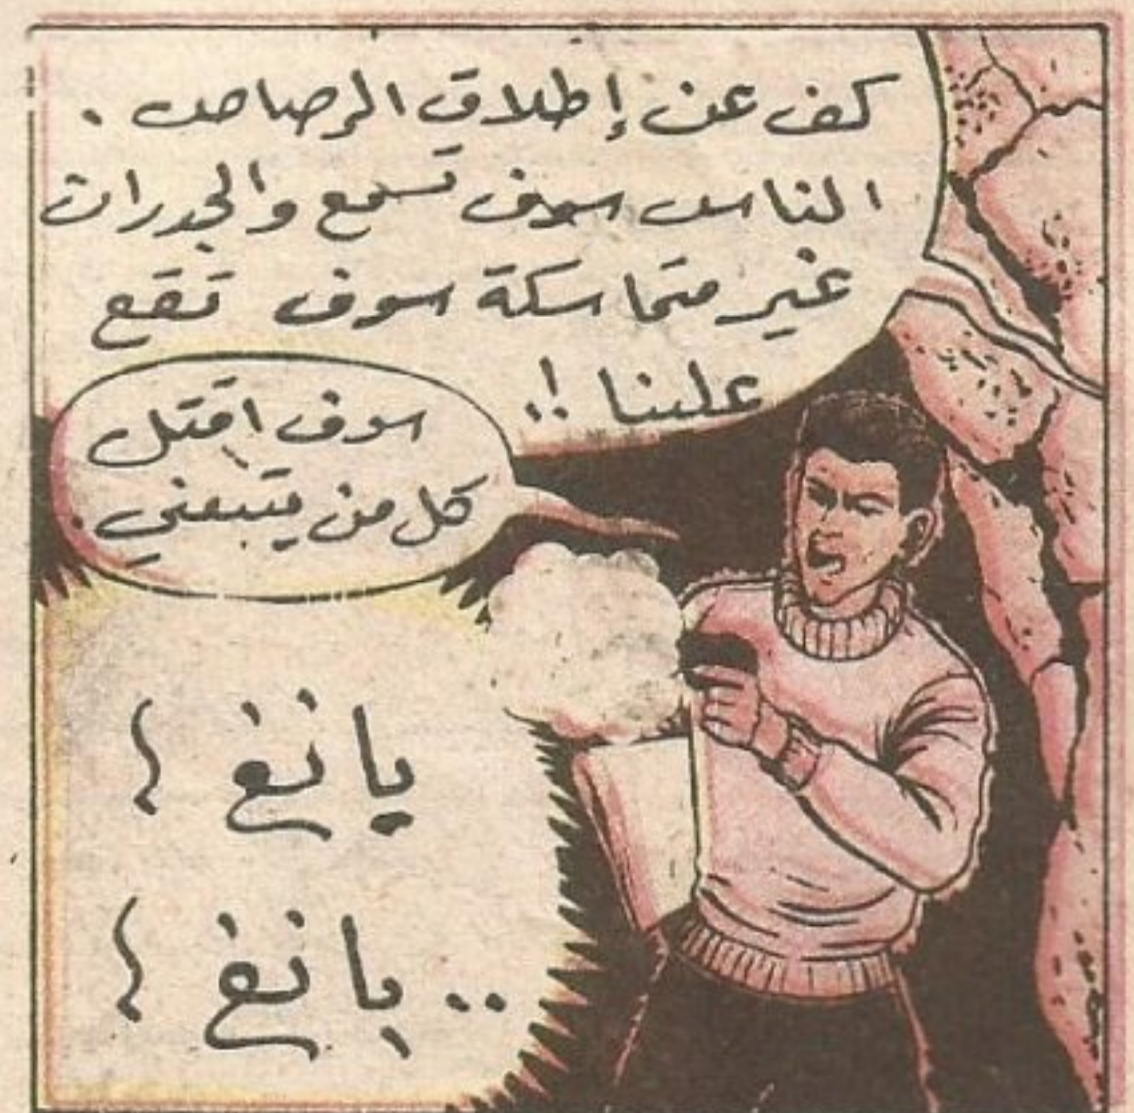 كف عن إطلاق الرصاص .
الناس سوف تسمع والجدران
غير متماسكة سوف تقع
علينا !..
سوف اقتل
كل من يتبعني.
يانغ {
.. بانغ {